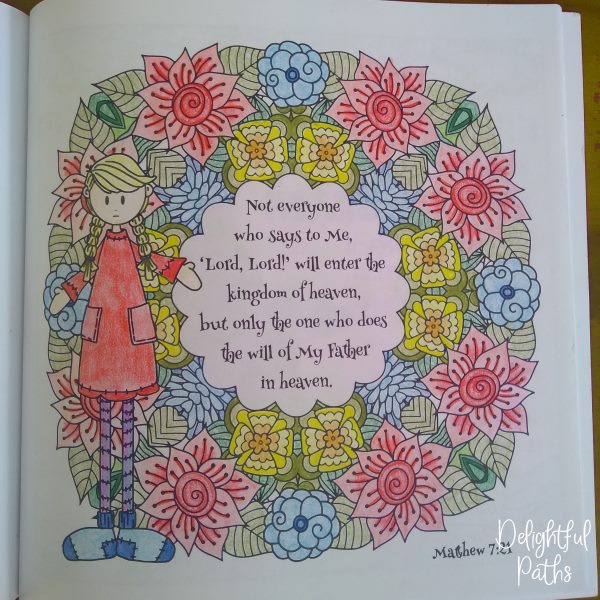 Not everyone
who says to Me,
‘Lord, Lord!’ will enter the
kingdom of heaven,
but only the one who does
the will of My Father
in heaven.
Matthew 7:21
Delightful
Paths